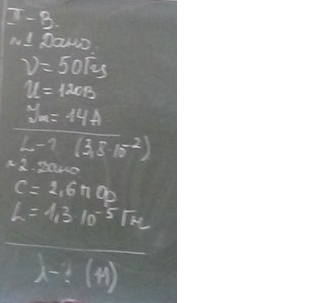 II-В.
№1 Дано:
ν = 50 Гц
U = 120В
Jm = 14А
L-? (3,8·10⁻²)
№2. Дано
C = 2,6 пФ
L = 1,3·10⁻⁵ Гн
λ-? (11)